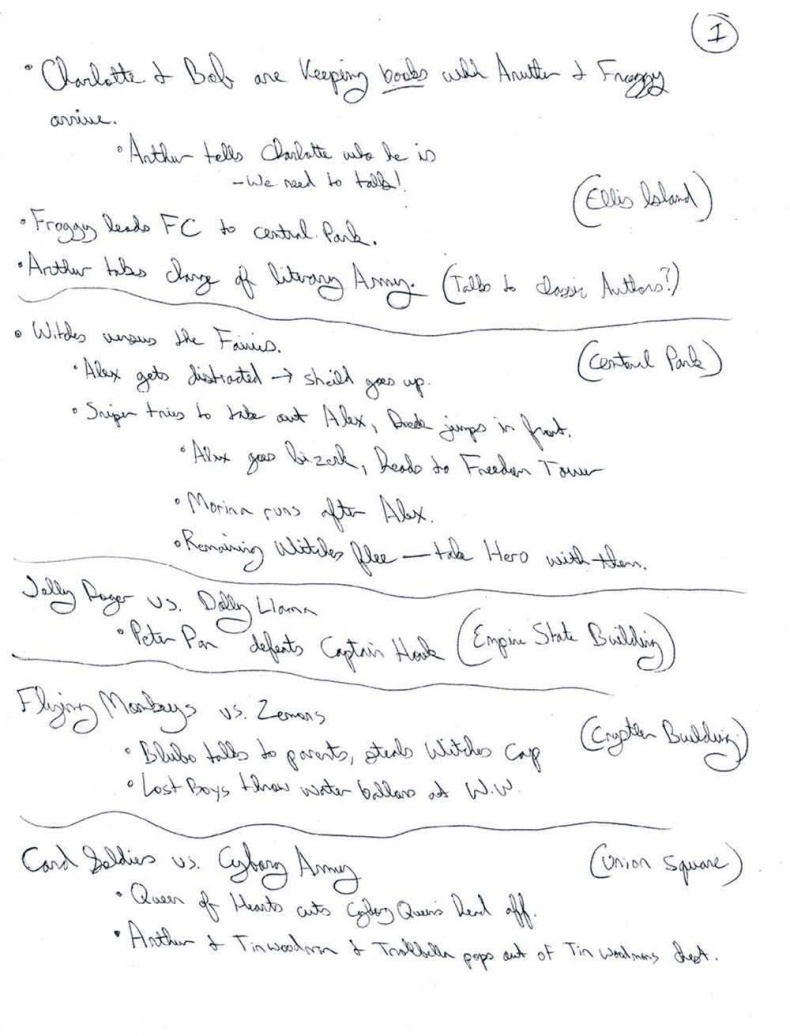 I
• Charlotte & Bob are keeping books until Arthur & Froggy
arrive.
• Arthur tells Charlotte who he is
- We need to talk!
(Ellis Island)
• Froggy leads FC to central Park.
• Arthur takes charge of literary Army. (Talks to classic Authors?)
• Witches versus the Fairies.
(Central Park)
• Alex gets distracted → sheild goes up.
• Sniper tries to take out Alex, jumps in front.
• Alex goes bizerk, heads to Freedom Tower
• Morina runs after Alex.
• Remaining Witches flee — take Hero with them.
Jolly Roger vs. Dolly Llama
• Peter Pan defeats Captain Hook (Empire State Building)
Flying Monkeys vs. Zemons
(Crystler Building)
• Blubo talks to parents, steals Witches Cap
• Lost Boys throw water ballons at W.W.
Card Soldiers vs. Cyborg Army
(Union Square)
• Queen of Hearts cuts Cyborg Queens head off.
• Arthur & Tinwoodman & Trollbella pops out of Tin woodmans chest.